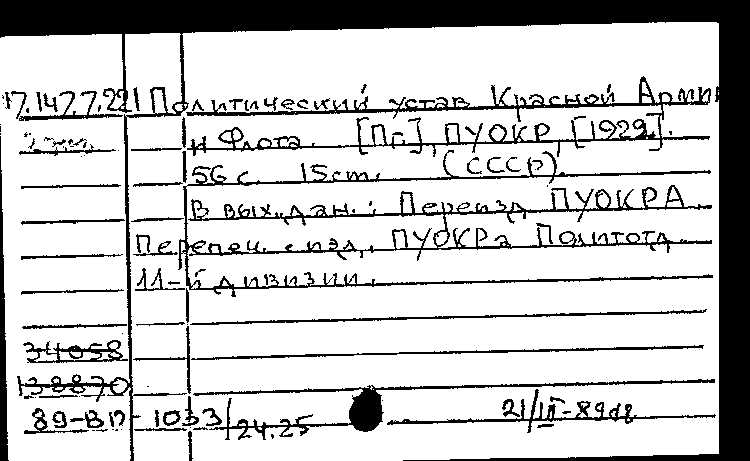 17.147.7.221 Политический устав Красной Армии
и Флота. [Пг.], ПУОКР, [1929.].
56 с. 15cm. (СССР).
В вых. дан.: Переизд ПУОКРА
Перепеч. с изд. ПУОКРа Политотд
11-й дивизии.
34058
138870
89-ВП-1033/24.25 21/III-89